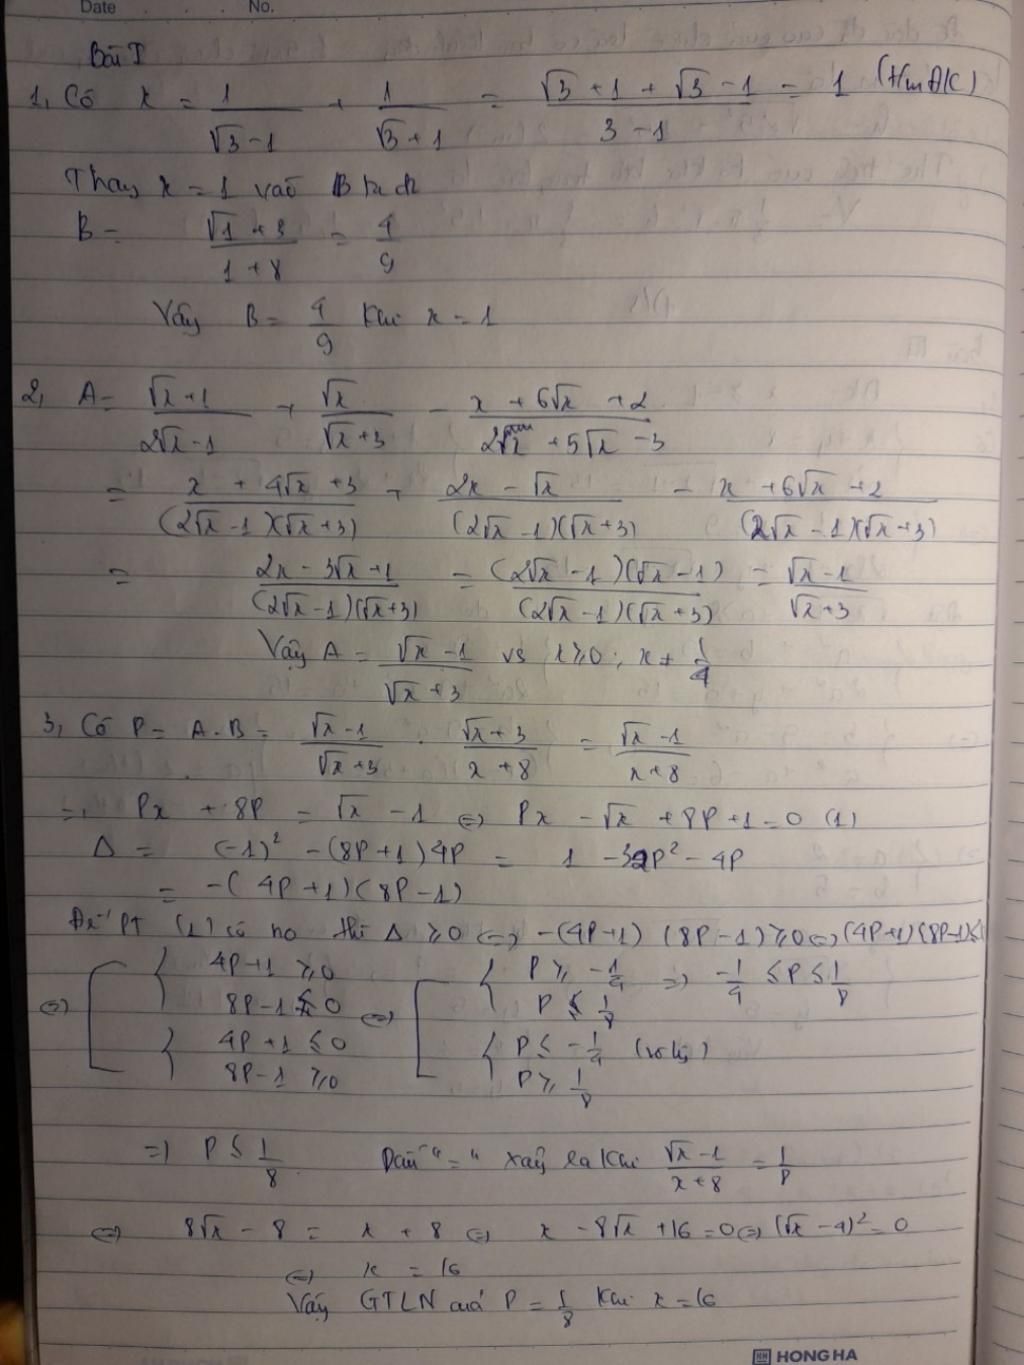 Date . . . No.
Bài I
1, Có x = 1/(√3 - 1) + 1/(√3 + 1) = (√3 + 1 + √3 - 1)/(3 - 1) = 1 (t/m ĐK)
Thay x = 1 vào B ta đc
B = (√1 + 3)/(1 + 8) = 4/9
Vậy B = 4/9 khi x = 1
2, A = (√x + 1)/(2√x - 1) + √x/(√x + 3) - (x + 6√x + 2)/(2x + 5√x - 3)
= (x + 4√x + 3)/((2√x - 1)(√x + 3)) + (2x - √x)/((2√x - 1)(√x + 3)) - (x + 6√x + 2)/((2√x - 1)(√x + 3))
= (2x - 3√x + 1)/((2√x - 1)(√x + 3)) = ((2√x - 1)(√x - 1))/((2√x - 1)(√x + 3)) = (√x - 1)/(√x + 3)
Vậy A = (√x - 1)/(√x + 3) vs x ≥ 0 ; x ≠ 1/4
3, Có P = A . B = (√x - 1)/(√x + 3) . (√x + 3)/(x + 8) = (√x - 1)/(x + 8)
=> Px + 8P = √x - 1 <=> Px - √x + 8P + 1 = 0 (1)
Δ = (-1)² - (8P + 1)4P = 1 - 32P² - 4P
= -(4P + 1)(8P - 1)
Để PT (1) có no thì Δ ≥ 0 <=> -(4P+1)(8P-1) ≥ 0 <=> (4P+1)(8P-1) ≤
4P + 1 ≥ 0 P ≥ -1/4 => -1/4 ≤ P ≤ 1/8
<=> 8P - 1 ≤ 0 <=> P ≤ 1/8
4P + 1 ≤ 0 P ≤ -1/4 (vô lý)
8P - 1 ≥ 0 P ≥ 1/8
=> P ≤ 1/8 Dấu "=" xảy ra khi (√x - 1)/(x + 8) = 1/8
<=> 8√x - 8 = x + 8 <=> x - 8√x + 16 = 0 <=> (√x - 4)² = 0
<=> x = 16
Vậy GTLN của P = 1/8 khi x = 16
HONG HA